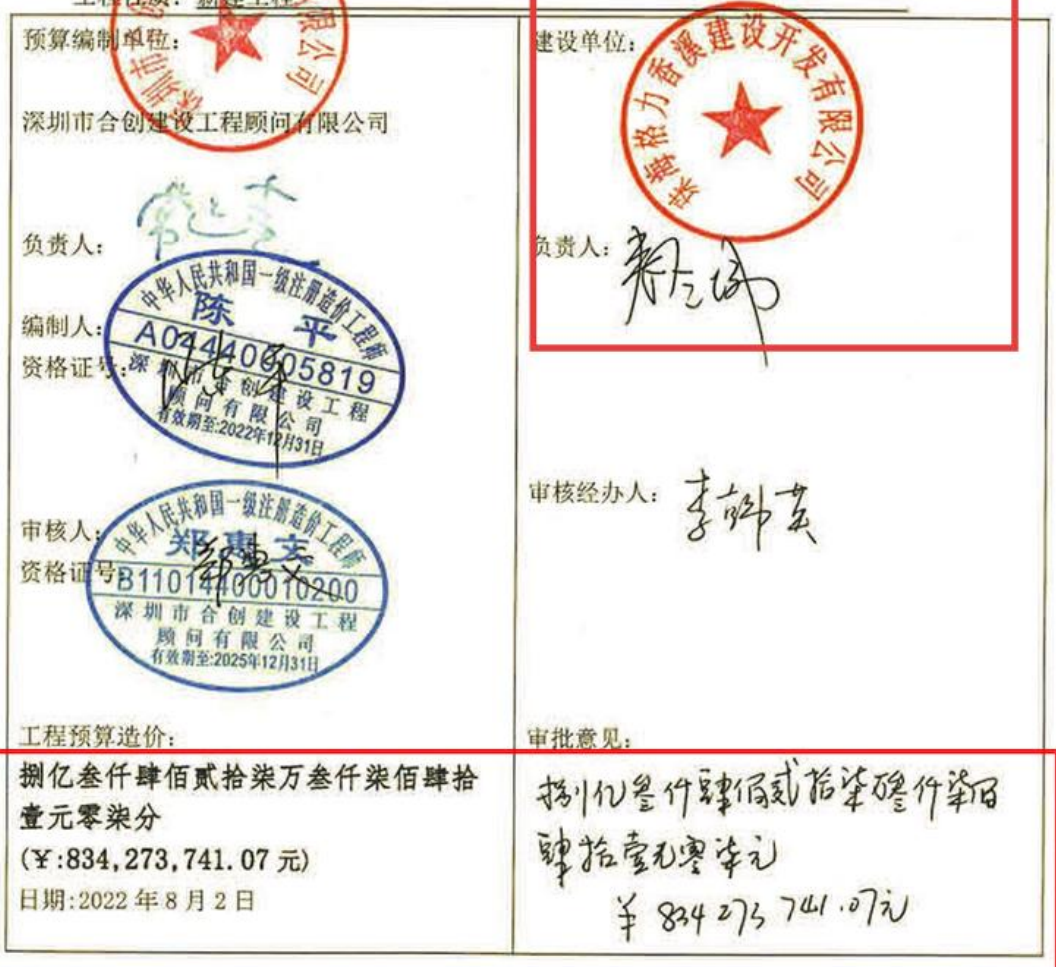 工程性质：新建工程
预算编制单位：
深圳市合创建设工程顾问有限公司
负责人：
中华人民共和国一级注册造价工程师
陈平
编制人：
A04440005819
资格证号：
深圳市合创建设工程
顾问有限公司
有效期至:2022年12月31日
中华人民共和国一级注册造价工程师
审核人：
郑惠文
资格证号：
B11014400010200
深圳市合创建设工程
顾问有限公司
有效期至:2025年12月31日
工程预算造价：
捌亿叁仟肆佰贰拾柒万叁仟柒佰肆拾
壹元零柒分
(¥:834,273,741.07 元)
日期:2022 年 8 月 2 日
建设单位：
珠海格力香溪建设开发有限公司
负责人：
审核经办人：
审批意见：
捌亿叁仟肆佰贰拾柒万叁仟柒佰
肆拾壹元零柒元
¥ 834 273 741.07元